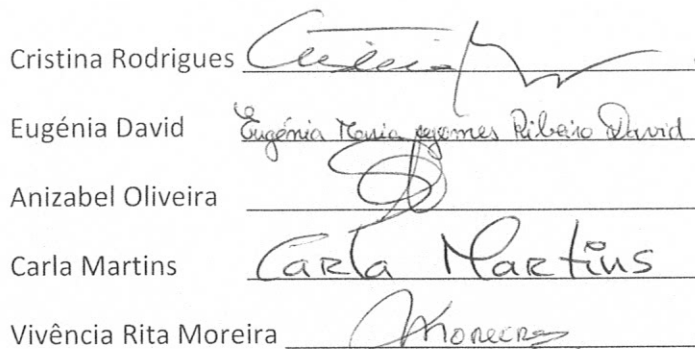 Cristina Rodrigues Cristina
Eugénia David Eugénia Maria Gomes Ribeiro David
Anizabel Oliveira
Carla Martins Carla Martins
Vivência Rita Moreira Moreira